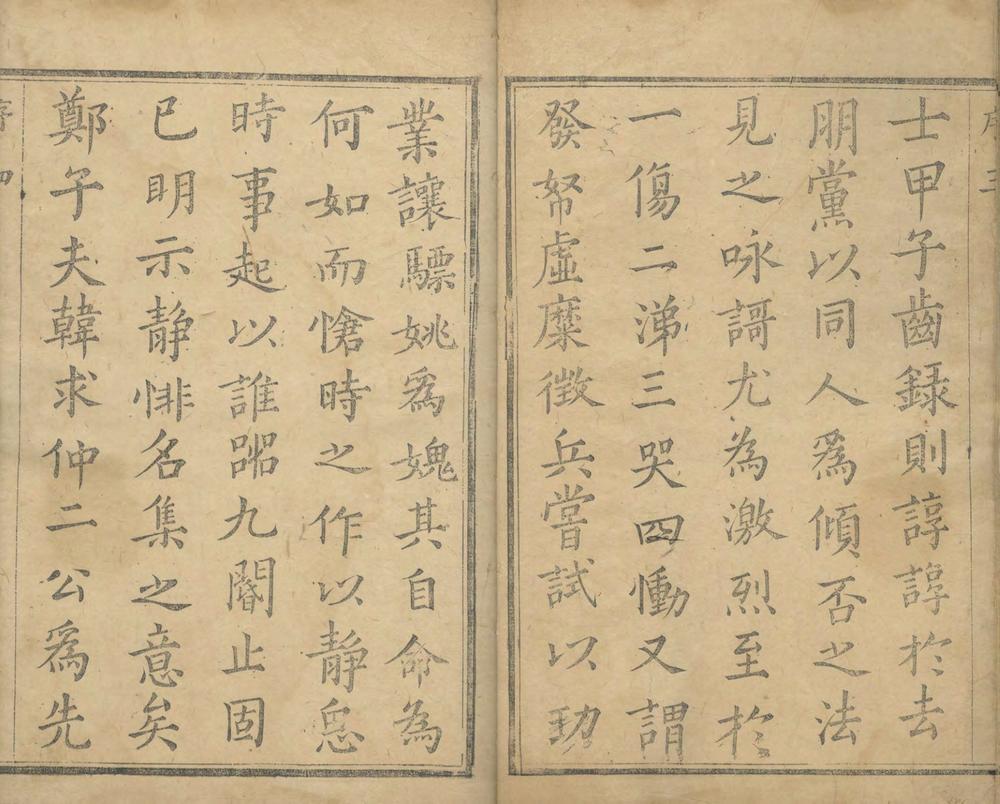 序 三
士甲子齒録則諄諄於去
朋黨以同人爲傾否之法
見之咏謌尤為激烈至於
一傷二涕三哭四慟又謂
發帑虛糜徴兵嘗試以
業讓驃姚爲媿其自命為
何如而愴時之作以静惡
時事起以誰躍九閽止固
已明示静悱名集之意矣
鄭子夫韓求仲二公爲先
序 四